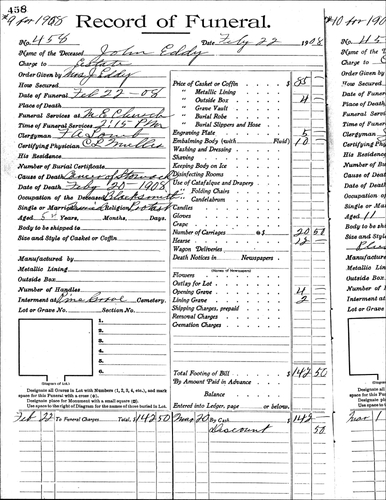 458
#9 for 1908
Record of Funeral.
No. 458 Date Feby 22 1908
Name of the Deceased John Eddy
Charge to Estate
Order Given by Mrs J. Eddy
How Secured
Date of Funeral Feb 22-08
Place of Death
Funeral Services at M.E. Church
Time of Funeral Services 2:15 P.M.
Clergyman
Certifying Physician
His Residence
Number of Burial Certificate
Cause of Death Cancer of Stomach
Date of Death Feby 20-1908
Occupation of the Deceased Blacksmith
Single or Married Religion
Aged Years, Months, Days.
Body to be shipped to
Size and Style of Casket or Coffin
Manufactured by
Metallic Lining
Outside Box
Number of Handles
Interment at Pine Grove Cemetery.
Lot or Grave No. Section No.
1.
2.
3.
4.
5.
6.
(Diagram of Lot.)
Designate all Graves in Lot with Numbers (1, 2, 3, 4, etc.), and mark
space for this Funeral with a cross (x).
Designate place for Monument with a small square (□).
Use space to right of Diagram for the names of those buried in Lot.
Feb 22 To Funeral Charges Total, $ 142 50
Price of Casket or Coffin $ 55
" Metallic Lining
" Outside Box 4
" Grave Vault
" Burial Robe
" Burial Slippers and Hose
Engraving Plate 5
Embalming Body (with Fluid) 10
Washing and Dressing
Shaving
Keeping Body on Ice
Disinfecting Rooms
Use of Catafalque and Drapery
" Folding Chairs
" Candelabrum
Candles
Gloves
Crape
Number of Carriages @ $ 20 50
Hearse 12
Wagon Deliveries
Death Notices in Newspapers
(Names of Newspapers)
Flowers
Outlay for Lot
Opening Grave 4
Lining Grave 2
Shipping Charges, prepaid
Removal Charges
Cremation Charges
Total Footing of Bill $ 142 50
By Amount Paid in Advance
Balance
Entered into Ledger, page or below.
20 By Cash 142
Discount 50
#10 for 190
No. 45
Name of the
Charge to
Order Given
How Secured
Date of Fun
Place of Dea
Funeral Serv
Time of Fune
Clergyman
Certifying P
His Residenc
Number of
Cause of Dea
Date of Deat
Occupation o
Single or Ma
Aged 11
Body to be s
Size and Sty
Manufacture
Metallic Lini
Outside Box
Number of H
Interment at
Lot or Grave
(Diag
Designate all Gr
space for this Fune
Designate place
Use space to righ
Mar 1